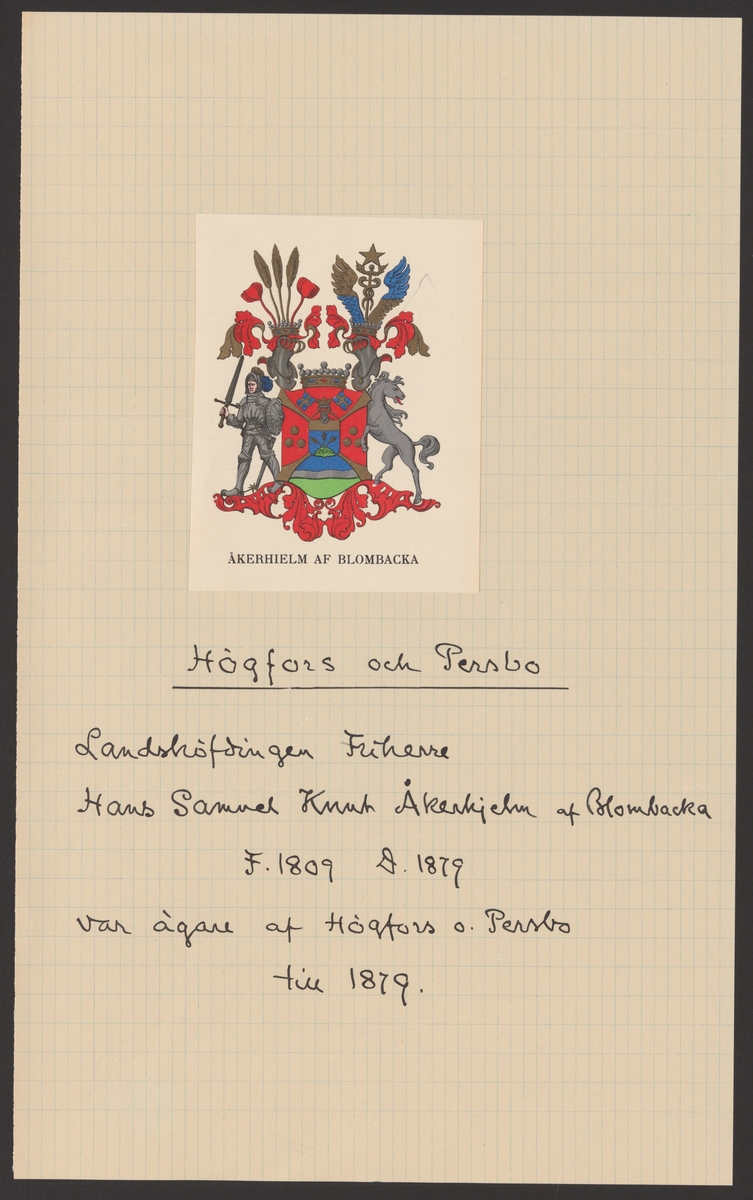 ÅKERHIELM AF BLOMBACKA
Högfors och Persbo
Landshöfdingen Friherre
Hans Samuel Knut Åkerhjelm af Blombacka
F. 1809 D. 1879
var ägare af Högfors o. Persbo
till 1879.